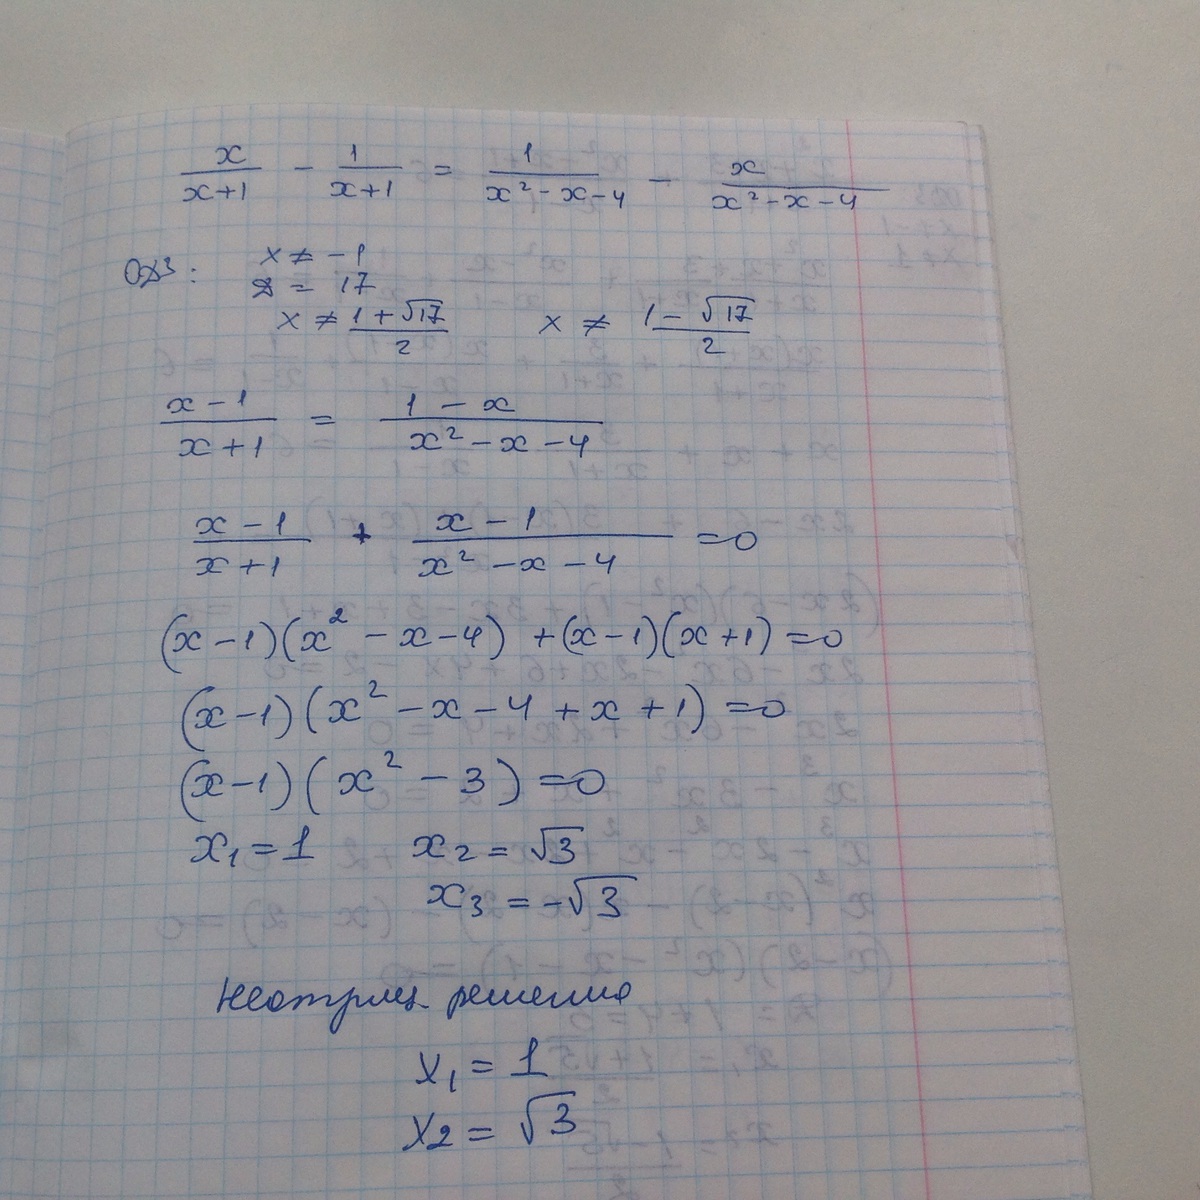 x/(x+1) - 1/(x+1) = 1/(x²-x-4) - x/(x²-x-4)
ОДЗ: x ≠ -1
D = 17
x ≠ (1+√17)/2   x ≠ (1-√17)/2
(x-1)/(x+1) = (1-x)/(x²-x-4)
(x-1)/(x+1) + (x-1)/(x²-x-4) = 0
(x-1)(x²-x-4) + (x-1)(x+1) = 0
(x-1)(x²-x-4+x+1) = 0
(x-1)(x²-3) = 0
x₁ = 1   x₂ = √3
x₃ = -√3
Неотриц. решения
x₁ = 1
x₂ = √3